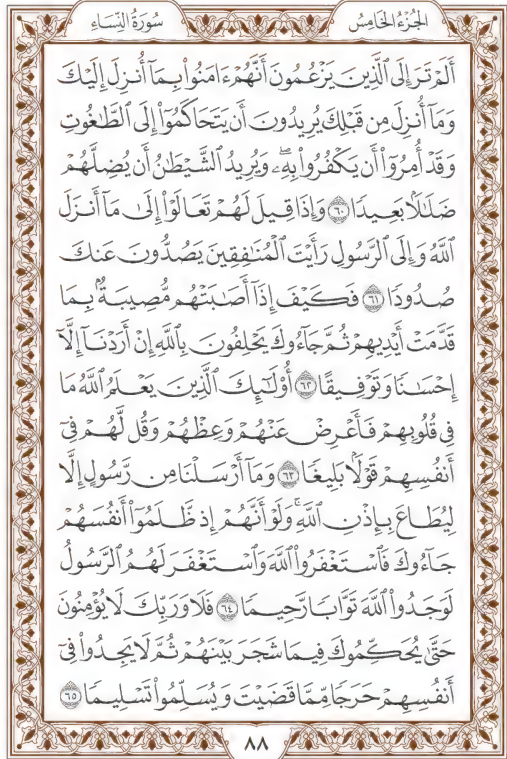 الجُزْءُ الخَامِسُ
سُورَةُ النِّسَاءِ
أَلَمْ تَرَ إِلَى ٱلَّذِينَ يَزْعُمُونَ أَنَّهُمْ ءَامَنُواْ بِمَآ أُنزِلَ إِلَيْكَ
وَمَآ أُنزِلَ مِن قَبْلِكَ يُرِيدُونَ أَن يَتَحَاكَمُوٓاْ إِلَى ٱلطَّٰغُوتِ
وَقَدْ أُمِرُوٓاْ أَن يَكْفُرُواْ بِهِۦۖ وَيُرِيدُ ٱلشَّيْطَٰنُ أَن يُضِلَّهُمْ
ضَلَٰلَۢا بَعِيدٗا ٦٠ وَإِذَا قِيلَ لَهُمْ تَعَالَوْاْ إِلَىٰ مَآ أَنزَلَ
ٱللَّهُ وَإِلَى ٱلرَّسُولِ رَأَيْتَ ٱلْمُنَٰفِقِينَ يَصُدُّونَ عَنكَ
صُدُودٗا ٦١ فَكَيْفَ إِذَآ أَصَٰبَتْهُم مُّصِيبَةُۢ بِمَا
قَدَّمَتْ أَيْدِيهِمْ ثُمَّ جَآءُوكَ يَحْلِفُونَ بِٱللَّهِ إِنْ أَرَدْنَآ إِلَّآ
إِحْسَٰنٗا وَتَوْفِيقًا ٦٢ أُوْلَٰٓئِكَ ٱلَّذِينَ يَعْلَمُ ٱللَّهُ مَا
فِى قُلُوبِهِمْ فَأَعْرِضْ عَنْهُمْ وَعِظْهُمْ وَقُل لَّهُمْ فِىٓ
أَنفُسِهِمْ قَوْلَۢا بَلِيغٗا ٦٣ وَمَآ أَرْسَلْنَا مِن رَّسُولٍ إِلَّا
لِيُطَاعَ بِإِذْنِ ٱللَّهِۚ وَلَوْ أَنَّهُمْ إِذ ظَّلَمُوٓاْ أَنفُسَهُمْ
جَآءُوكَ فَٱسْتَغْفَرُواْ ٱللَّهَ وَٱسْتَغْفَرَ لَهُمُ ٱلرَّسُولُ
لَوَجَدُواْ ٱللَّهَ تَوَّابٗا رَّحِيمٗا ٦٤ فَلَا وَرَبِّكَ لَا يُؤْمِنُونَ
حَتَّىٰ يُحَكِّمُوكَ فِيمَا شَجَرَ بَيْنَهُمْ ثُمَّ لَا يَجِدُواْ فِىٓ
أَنفُسِهِمْ حَرَجٗا مِّمَّا قَضَيْتَ وَيُسَلِّمُواْ تَسْلِيمٗا ٦٥
٨٨